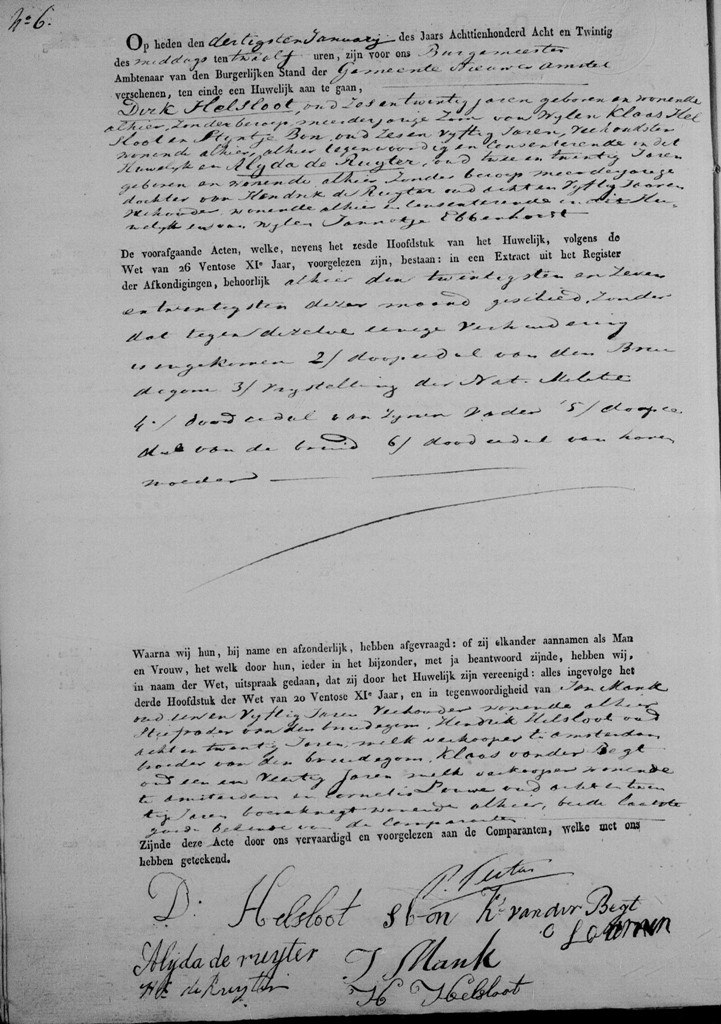 No 6.
Op heden den dertigsten January des Jaars Achttienhonderd Acht en Twintig
des middags ten twaalf uren, zijn voor ons Burgemeester
Ambtenaar van den Burgerlijken Stand der Gemeente Nieuwer Amstel
verschenen, ten einde een Huwelijk aan te gaan,
Dirk Helsloot, oud Zes en twintig jaren geboren en wonende
alhier, Zonder beroep meerderjarige Zoon van Wylen Klaas Hel
sloot en Styntje Bon, oud Zes en Vyftig Jaren, Veehoudster
wonende alhier, alhier tegenwoordig en Consenterende in dit
Huwelyk en Alyda de Ruyter, oud twee en twintig Jaren
geboren en wonende alhier Zonder beroep meerderjarige
dochter van Hendrik de Ruyter oud acht en Vyftig Jaaren
Veehouder wonende alhier en Consenterende in dit Hu-
welyk en van Wylen Jannetje Ebbenhorst
De voorafgaande Acten, welke, nevens het zesde Hoofdstuk van het Huwelijk, volgens de
Wet van 26 Ventose XIe Jaar, voorgelezen zijn, bestaan: in een Extract uit het Register
der Afkondigingen, behoorlijk alhier den twintigsten en Zeven
en twintigsten dezer maand geschied, Zonder
dat tegen dezelve eenige Verhindering
is ingekomen 2/ doopcedul van den Brui
degom 3/ Vrystelling der Nat. Militie
4/ doodcedul van Zynen Vader 5/ doopce
dul van de bruid 6/ doodcedul van haren
moeder
Waarna wij hun, bij name en afzonderlijk, hebben afgevraagd: of zij elkander aannamen als Man
en Vrouw, het welk door hun, ieder in het bijzonder, met ja beantwoord zijnde, hebben wij,
in naam der Wet, uitspraak gedaan, dat zij door het Huwelijk zijn vereenigd: alles ingevolge het
derde Hoofdstuk der Wet van 20 Ventose XIe Jaar, en in tegenwoordigheid van Jan Mank
oud een en Vyftig Jaren Veehouder wonende alhier
Stiefvader van den bruidegom, Hendrik Helsloot oud
acht en twintig Jaren, melk verkooper te Amsterdam
broeder van den bruidegom, Klaas van der Begt
oud een en Veertig Jaren melk verkooper wonende
te Amsterdam en Cornelis oud acht en twin
tig Jaren boereknegt wonende alhier, beide laatste
goede bekende van de Comparanten
Zijnde deze Acte door ons vervaardigd en voorgelezen aan de Comparanten, welke met ons
hebben geteekend.
D. Helsloot S bon Ks van der Begt
Alyda de ruyter J Mank
de Ruyter H Helsloot